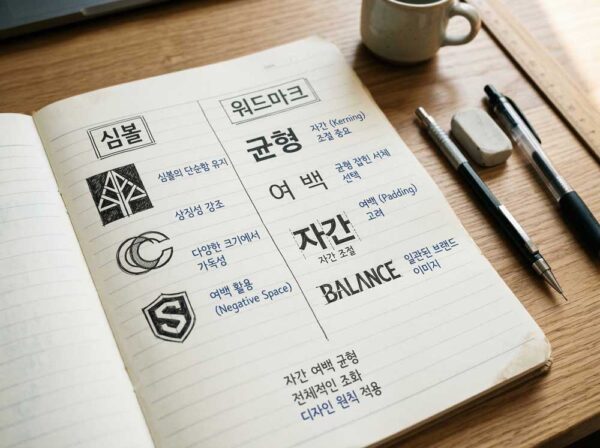 심볼
심볼의 단순함 유지
상징성 강조
다양한 크기에서
가독성
S
여백 활용
(Negative Space)
워드마크
균형
자간 (Kerning)
조절 중요
여 백
균형 잡힌 서체
선택
자간
자간 조절
여백 (Padding)
고려
BALANCE
일관된 브랜드
이미지
자간 여백 균형
전체적인 조화
디자인 원칙 적용